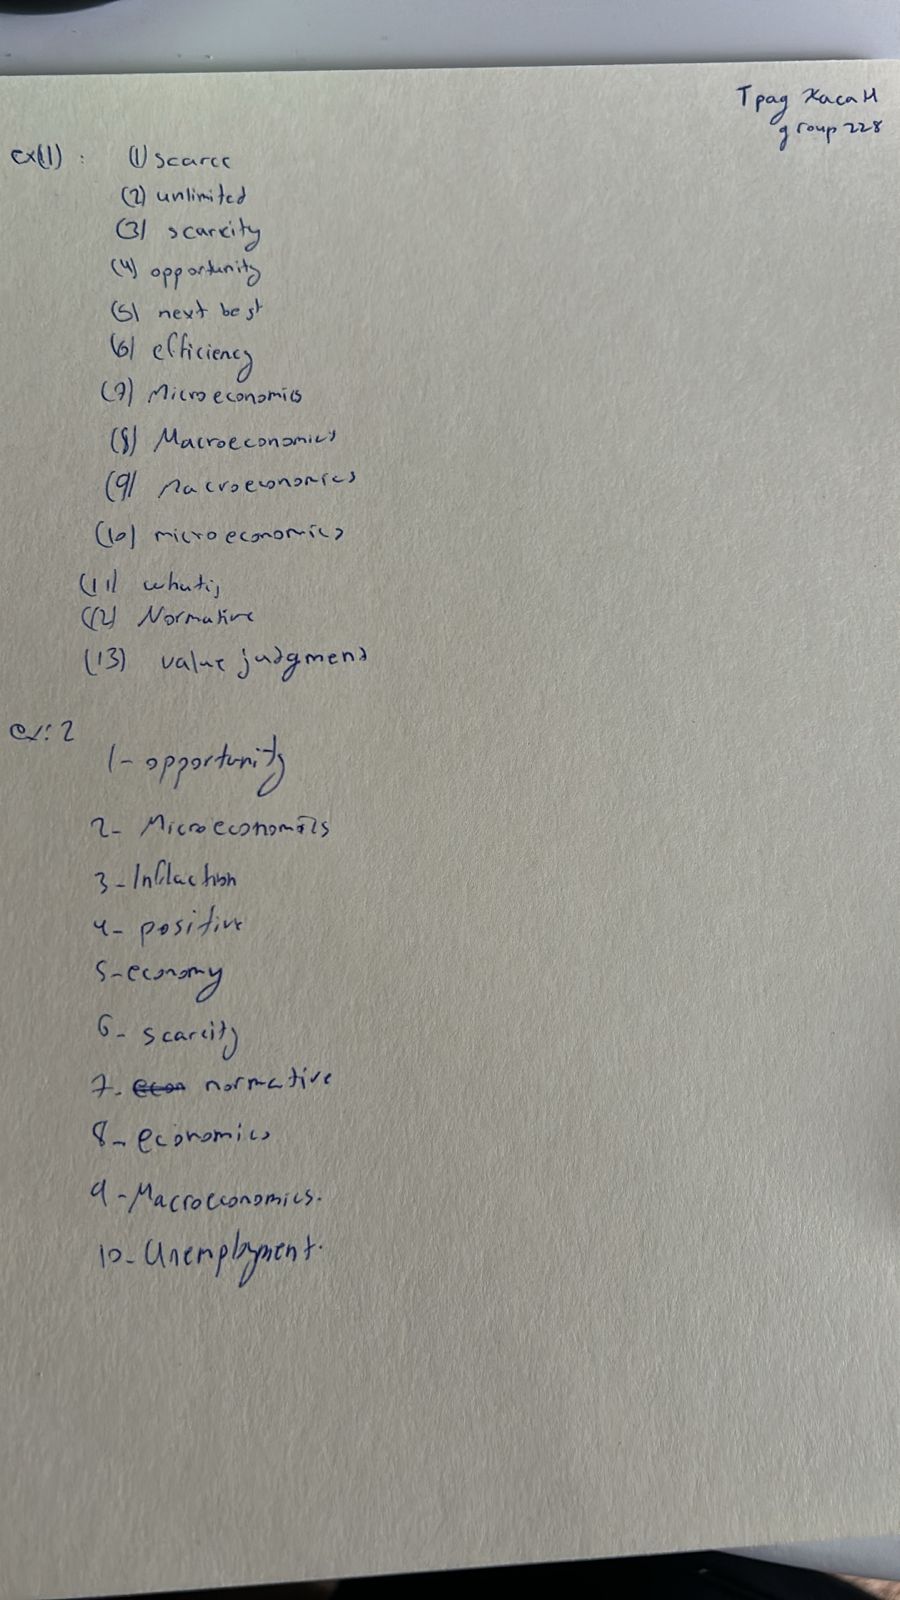 Трад Хасан
group 228
ex(1) : (1) scarce
(2) unlimited
(3) scarcity
(4) opportunity
(5) next best
(6) efficiency
(7) Microeconomics
(8) Macroeconomics
(9) Macroeconomics
(10) microeconomics
(11) what is
(12) Normative
(13) value judgment
ex: 2
1- opportunity
2- Microeconomics
3- Inflaction
4- positive
5- economy
6- scarcity
7. econ normative
8- economics
9- Macroeconomics.
10- Unemployment.